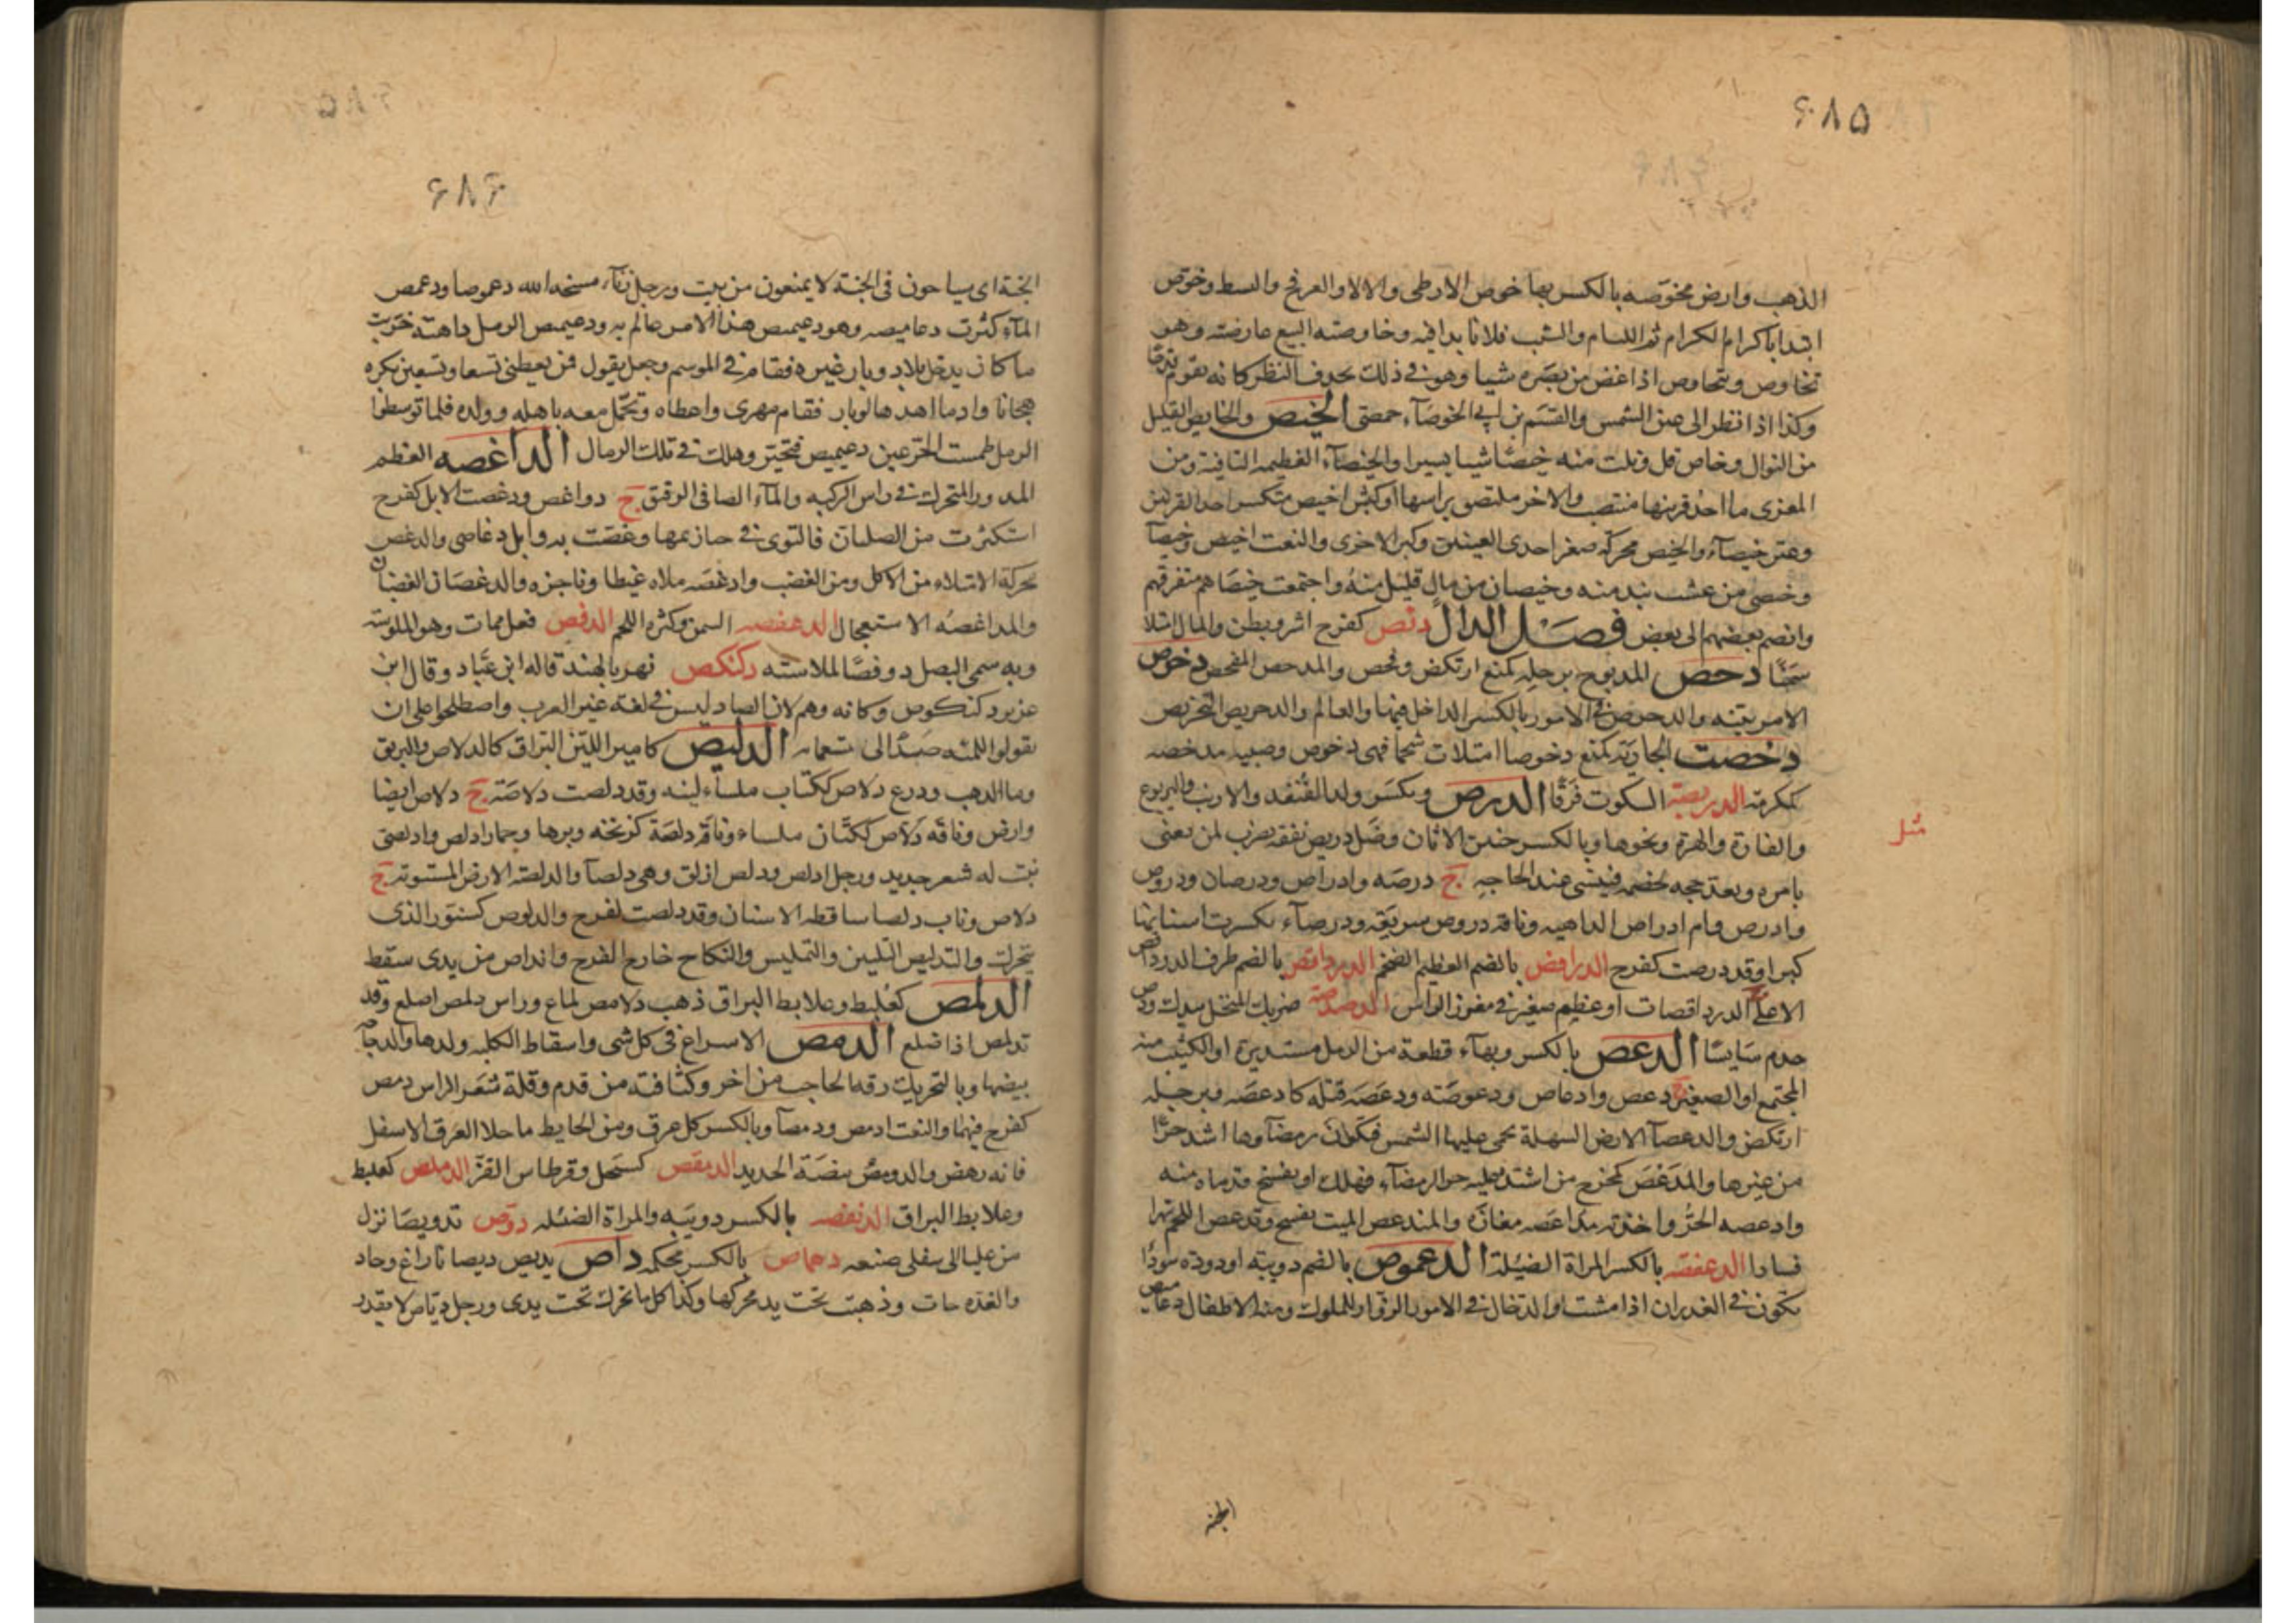 ۶۸۵
الذهب وارض مخوّصه بالكسر بها خوص الارطى والالاو العرفج والسبط وخوّص
ابتدا باكرام الكرام ثم اللئام والشيب فلانا بدا فيه وخاوصته البيع عارضته وهو
يخاوص ويتخاوص اذا غض من بصره شيا وهو في ذلك يحدق النظر كانه يقوم قدحا
وكذا اذا نظر الى عين الشمس والقسم بن ابي الخوصآء حمصى الخيص والخايص القليل
من النوال وخاص قل ونلت منه خيصا شيا يسيرا والخيصآء العظيمه النافية ومن
المعزى ما احد قرنيها منتصب والاخر ملتصق براسها او كبش اخيص منكسر احد القرنين
وعنز خيصآء والخيص محركه صغر احدى العينين وكبر الاخرى والنعت اخيص وخيصآ
وخيصى من عشب نبذ منه وخيصان من مال قليل منه واجتمعت خيصاهم متفرقهم
وانضم بعضهم الى بعض فصل الدال دئص كفرح اشر وبطن والمال امتلا
سمنا دحص المذبوح برجله كمنع ارتكض وفحص والمدحص المفحص دخوص
الامر بينه والدخوص في الامور بالكسر الداخل فيها والعالم والدخريص التخريص
دخصت الجارية كمنع دخوصا امتلات شحما فهى دخوص وصبيه مدخصه
كمكرمة الدربصة السكوت فرقا الدرص ويكسر ولد القنفد والارنب واليربوع
والفارة والهرة ونحوها وبالكسر جنين الاتان وضل دريص نفقه يضرب لمن يعنى
مثل
بامره ويعد حجه لخصمه فينسى عند الحاجه ج درصه وادراص ودرصان ودروص
وادرص وام ادراص الداهيه وناقه دروص سريعه ودرصآء تكسرت اسنانها
كبرا وقد درصت كفرح الدرافص بالضم العظيم الضخم الدرداقص بالضم طرف الدرداقص
الاعلى الدرداقصات او عظيم صغير في مغرز الراس الدصدصة ضربك المنخل بيدك ودص
خدم سايسا الدعص بالكسر وبهآء قطعة من الرمل مستديرة او الكثيب منه
المجتمع او الصغير ج دعص وادعاص ودعوصة ودعصه قتله كادعصه وبرجله
ارتكض والدعصآ الارض السهلة يحمى عليها الشمس فتكون رمضآوها اشد حرا
من غيرها والمدعص كمخرج من اشتد عليه حر الرمضآء فهلك او يفسخ قدماه منه
وادعصه الحرّ واخذته مداعصه مغازة والمندعص الميت يفسخ وتدعص اللحم تهرا
فسادا الدعفصه بالكسر المراة الضئيلة الدعموص بالضم دويبه او دودة سودا
تكون في الغدران اذا نشت والدخال في الامور الزوّار للملوك ومنه الاطفال دعاميص
الجنه
۶۸۶
الجنة اى سياحون فى الجنة لا يمنعون من بيت ورجل زنآء مسخه الله دعموصا ودعمص
المآء كثرت دعاميصه وهو دعيميص هذا الامر عالم به ودعيميص الرمل داهية خريت
ما كان يدخل بلاد وبار غيره فقام في الموسم وجعل يقول فمن يعطنى تسعا وتسعين بكره
هجانا وادما اهدها لوبار فقام مهرى واعطاه وتحمل معه باهله وولده فلما توسطوا
الرمل طمست الجن عين دعيميص فتحير وهلك في تلك الرمال الداغصه العظم
المدور المتحرك في راس الركبه والمآء الصافى الرقيق ج دواغص ودغصت الابل كفرح
استكثرت من الصليان فالتوى في حيازيمها وغصت به وابل دغاصى والدغص
محركة الامتلاء من الاكل ومن الغضب وادغصه ملاه غيظا وناجزه والدغصان الغضبان
والمداغصه الاستعجال الدغفصه السمن وكثرة اللحم الدفص فعل ممات وهو الملوسة
وبه سمى البصل دوفصا لملاسته دكنكص نهر بالهند قاله ابن عباد وقال ابن
عزيز دكنكوص وكانه وهم لان الصاد ليس في لغة غير العرب واصطلحوا على ان
يقولوا للمئه صدّ الى تسعمايه الدليص كامير اللين البراق كالدلاص والبريق
وما الذهب ودرع دلاص ككتاب ملسآء لينه وقد دلصت دلاصة ج دلاص ايضا
وارض وناقه دلاص ككتان ملساء وناقة دلصة كزنخه وبرها وحمار ادلص وادلصى
نبت له شعر جديد ورجل ادلص ودلص ازلق وهى دلصآ والدلصة الارض المستوية ج
دلاص وناب دلصا ساقطه الاسنان وقد دلصت كفرح والدلوص كسنور الذى
يتحرك والتدليص التليين والتمليس والنكاح خارج الفرج واندلص من يدى سقط
الدلمص كعلبط وعلابط البراق ذهب دلامص لماع وراس دلمص اصلع وقد
تدلمص اذا صلع الدمص الاسراع فى كل شى واسقاط الكلبه ولدها والدجاجه
بيضها وبالتحريك رقه الحاجب من اخر وكثافته من قدم وقلة شعر الراس دمص
كفرح فيهما والنعت ادمص ودمصآ وبالكسر كل عرق ومن الحايط ما خلا العرق الاسفل
فانه رهص والدومص بيضة الحديد الدمقص كسحل وقرطاس القز الدملص كعلبط
وعلابط البراق الدنفصه بالكسر دويبه والمراة الضئيله دوّص تدويصا نزل
من عليا الى سفلى صنعه دهماص بالكسر محكمه داص يديص ديصانا زاغ وحاد
والغدة جات وذهبت تحت يد محركها وكذا كل ما تحرك تحت يدى ورجل دياص لا يقدر